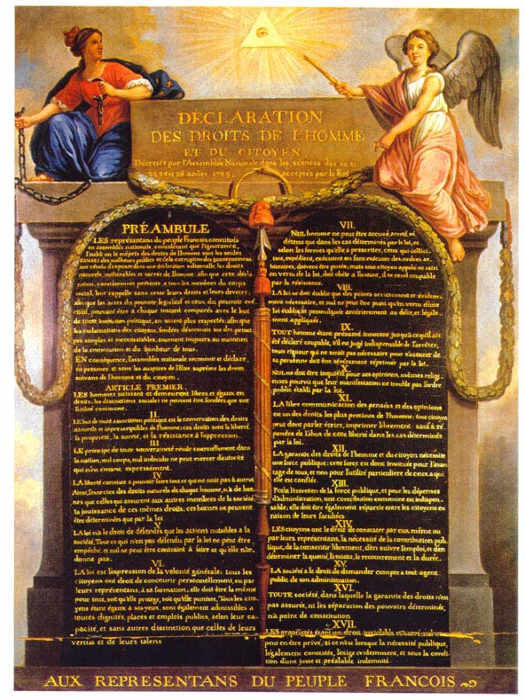 DÉCLARATION
DES DROITS DE L'HOMME
ET DU CITOYEN,
Décrétés par l'Assemblée Nationale dans les séances des 20, 21
23, 24 et 26 août 1789, acceptés par le Roi
PRÉAMBULE
LES représentans du peuple François constitués
en assemblée nationale, considérant que l'ignorance,
l'oubli ou le mépris des droits de l'homme sont les seules
causes des malheurs publics et de la corruption des gouvernemens
ont résolu d'exposer dans une déclaration solemnelle, les droits
naturels, inaliénables et sacrés de l'homme; afin que cette décla
ration, constamment présente a tous les membres du corps
social, leur rappelle sans cesse leurs droits et leurs devoirs;
afin que les actes du pouvoir législatif et ceux du pouvoir exé
cutif, pouvant être a chaque instant comparés avec le but
de toute institution politique, en soient plus respectés; afin que
les réclamations des citoyens, fondées désormais sur des princi
pes simples et incontestables, tournent toujours au maintien
de la constitution et du bonheur de tous.
EN conséquence, l'assemblée nationale reconnoit et déclare
en présence et sous les auspices de l'Être suprême les droits
suivans de l'homme et du citoyen.
ARTICLE PREMIER.
LES hommes naissent et demeurent libres et égaux en
droits, les distinctions sociales ne peuvent être fondées que sur
l'utilité commune.
II.
LE but de toute association politique est la conservation des droits
naturels et imprescriptibles de l'homme; ces droits sont la liberté,
la propriété, la sureté, et la résistance à l'oppression.
III.
LE principe de toute souveraineté réside essentiellement dans
la nation, nul corps, nul individu ne peut exercer d'autorité
qui n'en émane expressément.
IV.
LA liberté consiste a pouvoir faire tout ce qui ne nuit pas à autrui
Ainsi, l'exercice des droits naturels de chaque homme, n'a de bor
nes que celles qui assurent aux autres membres de la société
la jouissance de ces mêmes droits; ces bornes ne peuvent
être déterminées que par la loi
V.
LA loi n'a le droit de défendre que les actions nuisibles à la
société. Tout ce qui n'est pas défendu par la loi ne peut être
empêché, et nul ne peut être contraint à faire ce qu'elle n'or
donne pas.
VI.
LA loi est l'expression de la volonté générale; tous les
citoyens ont droit de concourir personnellement, ou par
leurs représentans, à sa formation; elle doit être la même
pour tous, soit qu'elle protege, soit qu'elle punisse. Tous les cito
yens étant égaux à ses yeux, sont également admissibles a
toutes dignités, places et emplois publics, selon leur ca
pacité, et sans autres distinction que celles de leurs
vertus et de leurs talens
VII.
NUL homme ne peut être accusé, arrêté, ni
détenu que dans les cas déterminés par la loi, et
selon les formes qu'elle a prescrites, ceux qui sollici
tent, expédient, exécutent ou font exécuter des ordres ar
bitraires, doivent être punis; mais tout citoyen appelé ou saisi
en vertu de la loi, doit obéir a l'instant, il se rend coupable
par la résistance.
VIII.
LA loi ne doit établir que des peines strictement et évidem
ment nécessaires, et nul ne peut être puni qu'en vertu d'une
loi établie et promulguée antérierement au délit, et légale
ment appliquée.
IX.
TOUT homme étant présumé innocent jusqu'a ce qu'il ait
été déclaré coupable, s'il est jugé indispensable de l'arrêter,
toute rigueur qui ne serait pas nécessaire pour s'assurer de
sa personne doit être sévèrement réprimée par la loi.
X.
NUL ne doit être inquiété pour ses opinions, mêmes religi
euses pourvu que leur manifestation ne trouble pas l'ordre
public établi par la loi.
XI.
LA libre communication des pensées et des opinions
est un des droits les plus précieux de l'homme; tout citoyen
peut donc parler, écrire, imprimer librement: sauf à ré
pondre de l'abus de cette liberté dans les cas déterminés
par la loi.
XII.
LA garantie des droits de l'homme et du citoyen nécessite
une force publique; cette force est donc instituée pour l'avan
tage de tous, et non pour l'utilité particulière de ceux a qui
elle est confiée.
XIII.
POUR l'entretien de la force publique, et pour les dépenses
d'administration, une contribution commune est indispen
sable; elle doit être également répartie entre les citoyens en
raison de leurs facultés.
XIV.
LES citoyens ont le droit de constater par eux même ou
par leurs représentans, la nécessité de la contribution pub
lique, de la consentir librement, d'en suivre l'emploi, et d'en
déterminer la quotité, l'assiette, le recouvrement et la durée.
XV.
LA société a le droit de demander compte a tout agent
public de son administration.
XVI.
TOUTE société, dans laquelle la garantie des droits n'est
pas assurée, ni la séparation des pouvoirs déterminée,
n'a point de constitution.
XVII.
LES propriétés étant un droit inviolable et sacré, nul ne
peut en être privé, si ce n'est lorsque la nécessité publique,
légalement constatée, l'exige évidemment, et sous la condi
tion d'une juste et préalable indemnité.
AUX REPRESENTANS DU PEUPLE FRANCOIS